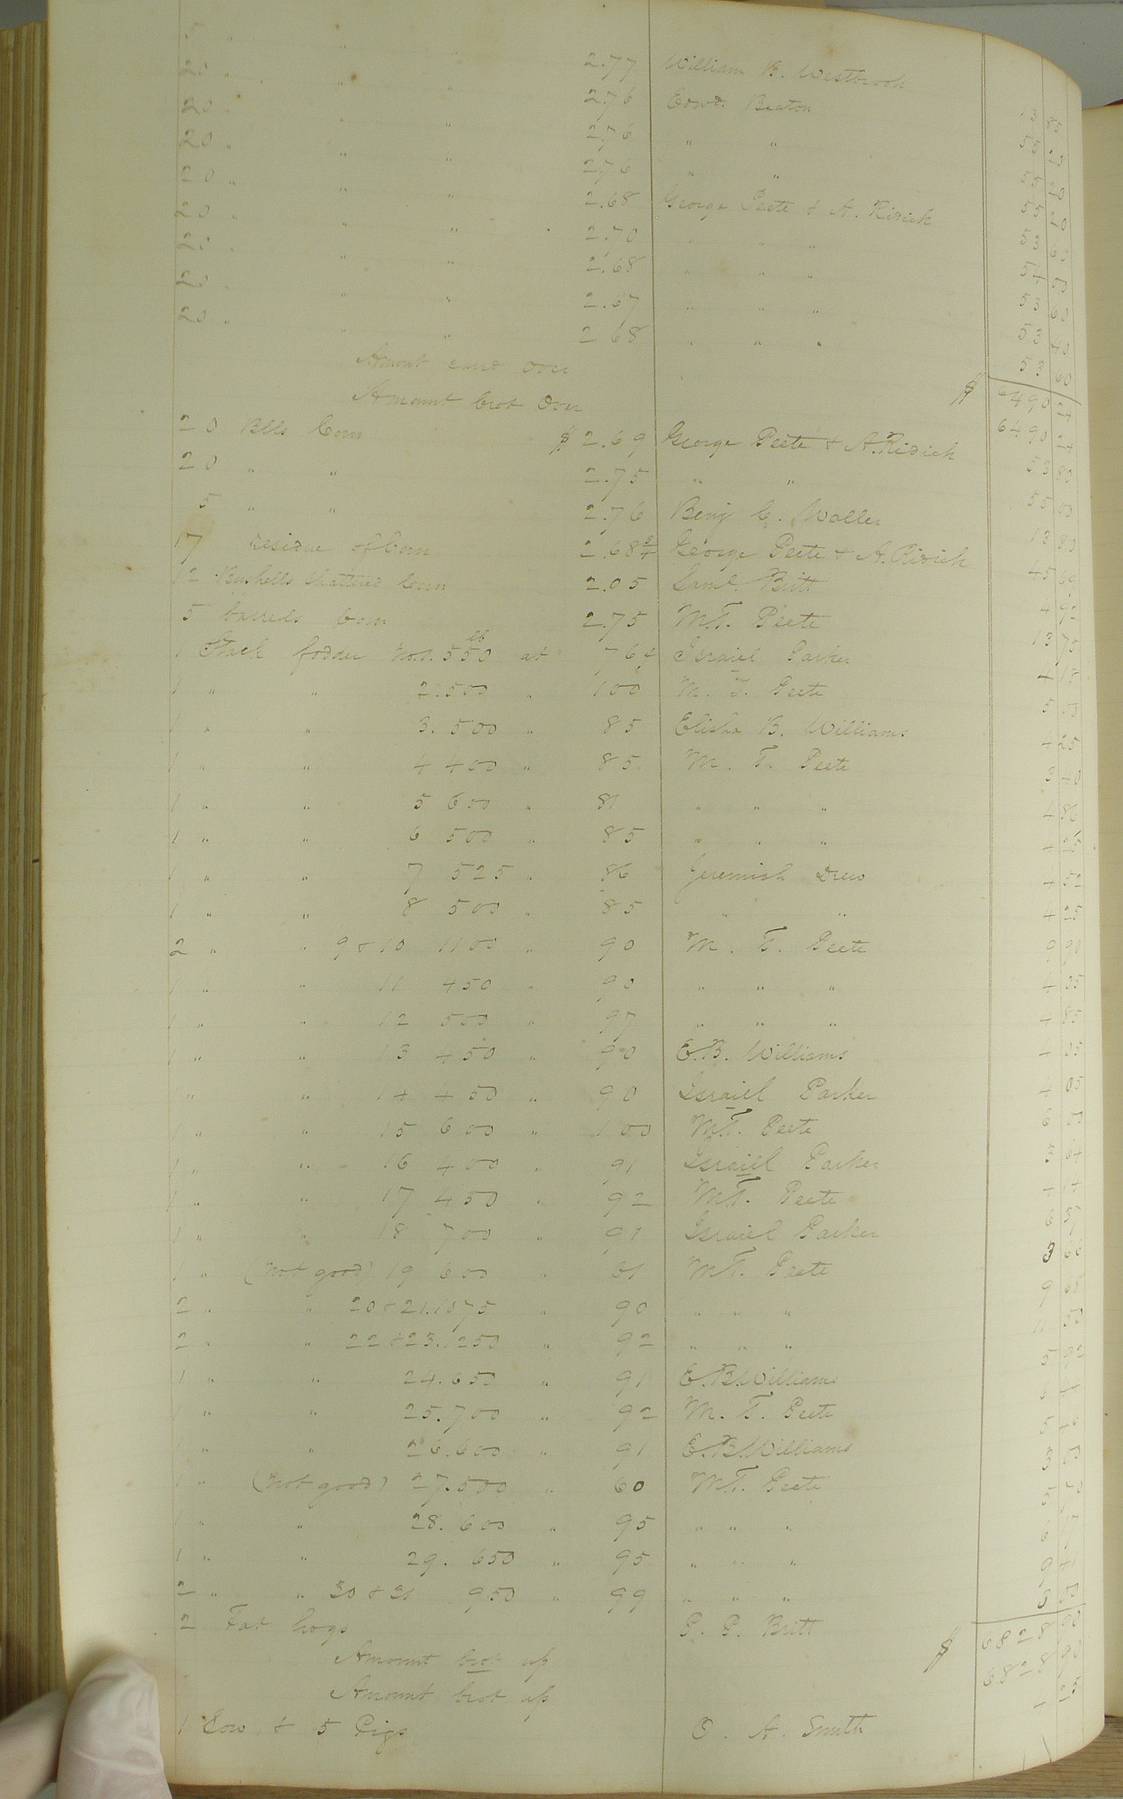 5 " " " 2.77 William B. Westbrook
20 " " " 2.76 Edwd. Beaton
20 " " " 2.76 " "
20 " " " 2.76 " "
20 " " " 2.68 George Peete & A. Ridick
20 " " " 2.70 " " "
20 " " " 2.68 " " "
20 " " " 2.67 " " "
20 " " " 2 68 " " "
Amount card over $ 6490
Amount brot Over 6490
20 Blls Corn $ 2.69 George Peete & A. Ridick 53 80
20 " " 2.75 " " 55
5 " " 2.76 Benj C. Waller 13 80
17 residue of Corn 2.68 3/4 George Peete & A. Ridick 45
12 Bushells shattered Corn 2.05 Saml. Britt
5 barrels Corn 2.75 M.T. Peete 13 75
1 Stack fodder No.1. 550 lb at 76 Israiel Parker
1 " " 2.500 " 100 M. T. Peete 5
1 " " 3.500 " 85 Elisha B. Williams 4 25
1 " " 4 400 " 85 M. T. Peete 3 40
1 " " 5 600 " 81 " " " 4 86
1 " " 6 500 " 85 " " " 4 25
1 " " 7 525 " 86 Jeremiah Drew 4 52
1 " " 8 500 " 85 " " 4 25
2 " " 9 & 10 1100 " 90 M. T. Peete 9 90
1 " " 11 450 " 90 " " " 4 05
1 " " 12 500 " 97 " " " 4 85
1 " " 13 450 " 90 E.B. Williams 4 05
" " 14 450 " 90 Israiel Parker 4 05
1 " " 15 600 " 100 M.T. Peete 6
1 " " 16 400 " 91 Israiel Parker 3 64
1 " " 17 450 " 92 M.T. Peete 4 14
1 " " 18 700 " 91 Israiel Parker 6 37
1 " (not good) 19 600 " 61 M.T. Peete 3 66
2 " " 20 & 21.1075 " 90 " " " 9 68
2 " " 22 & 23.1250 " 92 " " " 11 50
1 " " 24.650 " 91 E.B. Williams 5 92
1 " " 25.700 " 92 M. T. Peete 6 44
1 " " 26.600 " 91 E.B. Williams 5 46
1 " (not good) 27.500 " 60 M.T. Peete 3
1 " " 28. 600 " 95 " " " 5
1 " " 29. 650 " 95 " " " 6
2 " " 30 & 31 950 " 99 " " " 9
2 Fat hogs P. P. Britt
Amount brot up $ 6828
Amount brot up 6828
1 Sow & 5 Pigs O. A. Smith